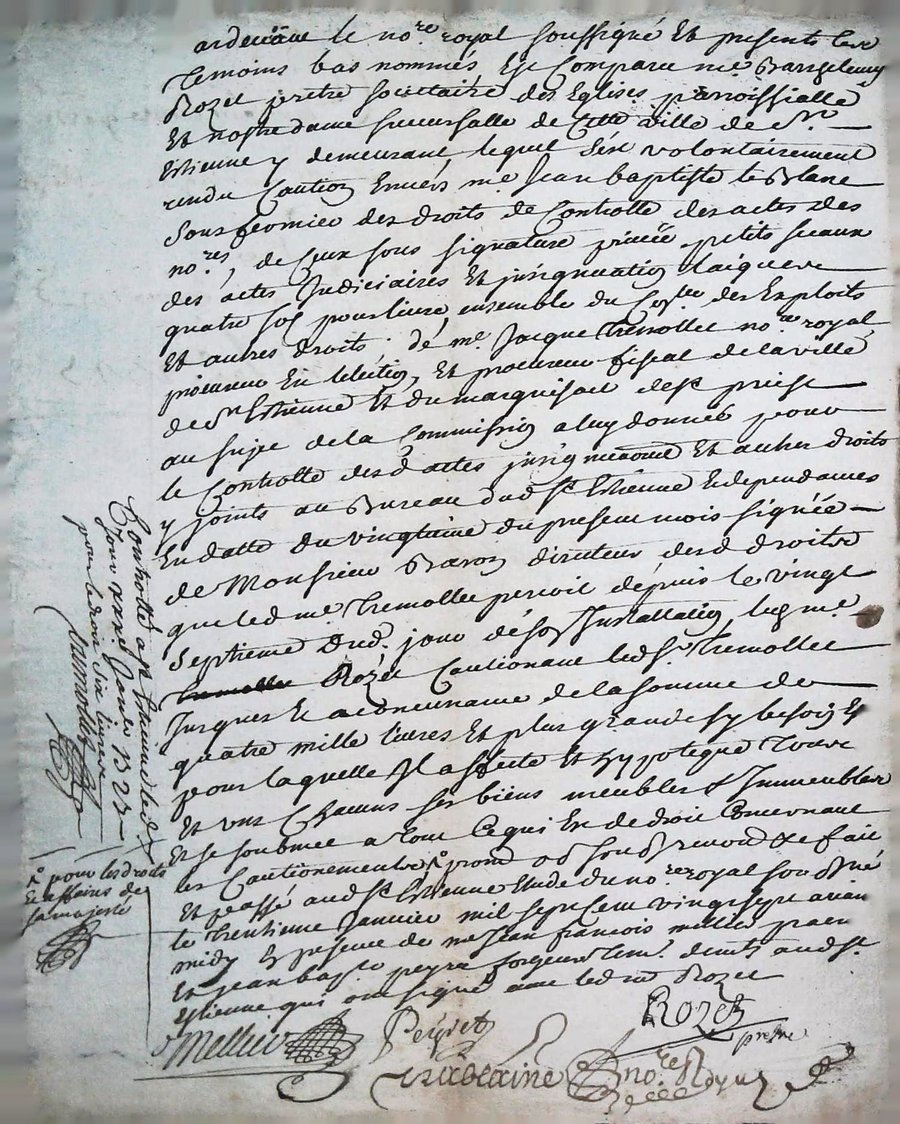 ardevant le no.re royal soussigné Et presents les
Temoins bas nommés Est Comparu me.
Rozet prêtre societaire des Eglises parroissialle
Et nostre dame succursalle de Cette ville de St
Estienne y demeurant, lequel s'est volontairement
rendu Caution Envers me Jean baptiste le Blanc
sous fermier des droits de Controlle des actes des
no.res, de Ceux sous signature privée petits sceaux
des actes Judiciaires Et insignuation laique
quatre sol pour livre ensemble du Con.lle des Exploits
Et autres droits. de me. Jacque Tremollet no.re royal
procureur En lelection, Et procureur fiscal de la ville
de St Estienne Et du marquisat de St priest
au sujet de la Commission a luy donnée pour
le Controlle des d actes Et autres droits
y joints au Bureau dud St Estienne Et dependances
En datte du vingtaine du present mois signée
de Monsieur Baron directeur desd droits
que led me. Tremollet percoit depuis le vingt
septieme dud. jour de son Installation, leq me.
Rozet Cautionant led Sr Tremollet
Jusques Et a concurrance de la somme de
quatre mille livres Et plus grande sy besoin Est
pour laquelle Il affecte Et hypoteque Tous
Et uns Chacuns ses biens meubles & Immeubles
Et se soubmet a Tout Ce qui Est de droit Concernant
les Cautionements Fait
Et passé aud St Estienne Etude du no.re royal soussigné
le Trentieme Janvier mil sept cent vingt sept avant
midy En presence de me Jean françois mellier
Et Jean bapte peyret forgeur aud St
Estienne qui ont signé avec led me Rozet
Rozet
prestre
Mellier
Peyret
no.re Royal
Controllé a St Estienne led
Jour xxx Janvier 1727
pour le droit six livres
po pour les droits
Et affaires de
sa majesté